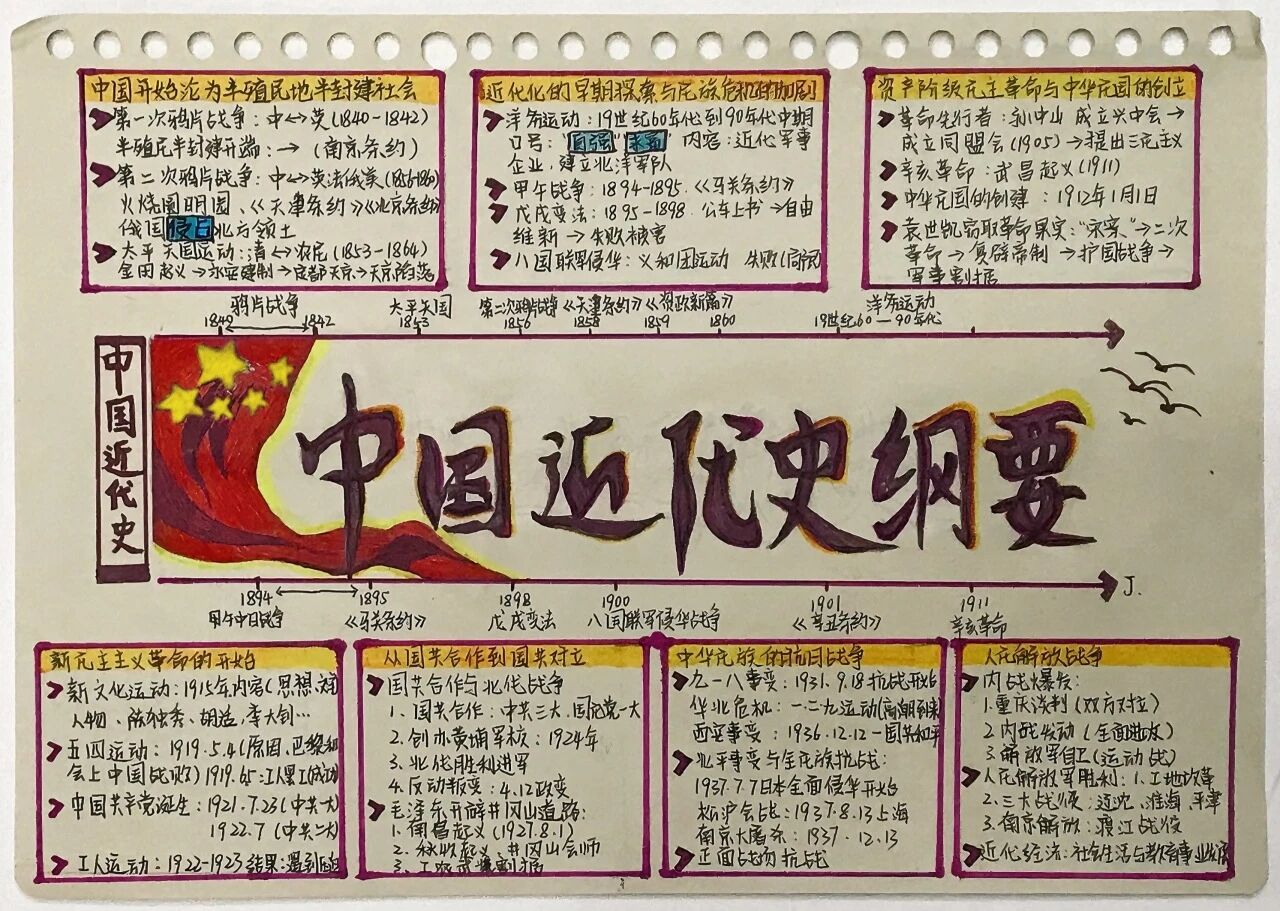 中国开始沦为半殖民地半封建社会
第一次鸦片战争：中↔英(1840-1842)
半殖民半封建开端：→（南京条约）
第二次鸦片战争：中↔英法俄美(1856-1860)
火烧圆明园、《天津条约》《北京条约》
俄国侵占北方领土
太平天国运动：清↔农民(1853-1864)
金田起义→永安建制→定都天京→天京陷落
近代化的早期探索与民族危机的加剧
洋务运动：19世纪60年代到90年代中期
口号："自强""求富" 内容：近代军事
企业，建立北洋军队
甲午战争：1894-1895.《马关条约》
戊戌变法：1895-1898. 公车上书→自由
维新→失败被害
八国联军侵华：义和团运动 失败
资产阶级民主革命与中华民国的创立
革命先行者：孙中山 成立兴中会→
成立同盟会(1905)→提出三民主义
辛亥革命：武昌起义(1911)
中华民国的创建：1912年1月1日
袁世凯窃取革命果实："宋案"→二次
革命→复辟帝制→护国战争→
军事割据
鸦片战争 太平天国 第二次鸦片战争《天津条约》《资政新篇》 洋务运动
1840 1842 1853 1856 1858 1859 1860 19世纪60—90年代
中国近代史
中国近代史纲要
J.
1894 1895 1898 1900 1901 1911
甲午中日战争 《马关条约》 戊戌变法 八国联军侵华战争 《辛丑条约》 辛亥革命
新民主主义革命的开始
新文化运动：1915年.内容(思想、
人物、陈独秀、胡适、李大钊…
五四运动：1919.5.4(原因、巴黎和
会上中国战败) 1919.6.5：工人罢工(成功
中国共产党诞生：1921.7.23(中共一大)
1922.7(中共二大)
工人运动：1922-1923 结果：遇到
从国共合作到国共对立
国共合作与北伐战争
1.国共合作：中共三大.国民党一大
2.创办黄埔军校：1924年
3.北伐胜利进军
4.反动叛变：4.12政变
毛泽东开辟井冈山道路：
1.南昌起义(1927.8.1)
2.秋收起义、井冈山会师
3.工农武装割据
中华民族的抗日战争
九一八事变：1931.9.18抗战开始
华北危机：一二九运动(高潮到来
西安事变：1936.12.12-国共和平
北平事变与全民族抗战：
1937.7.7日本全面侵华开始
松沪会战：1937.8.13上海
南京大屠杀：1937.12.13
正面战场抗战
人民解放战争
内战爆发：
1.重庆谈判(双方对立)
2.内战发动(全面进攻)
3.解放军自卫(运动战)
人民解放军胜利：1.土地改革
2.三大战役：辽沈、淮海、平津
3.南京解放：渡江战役
近代经济：社会生活与教育事业发展